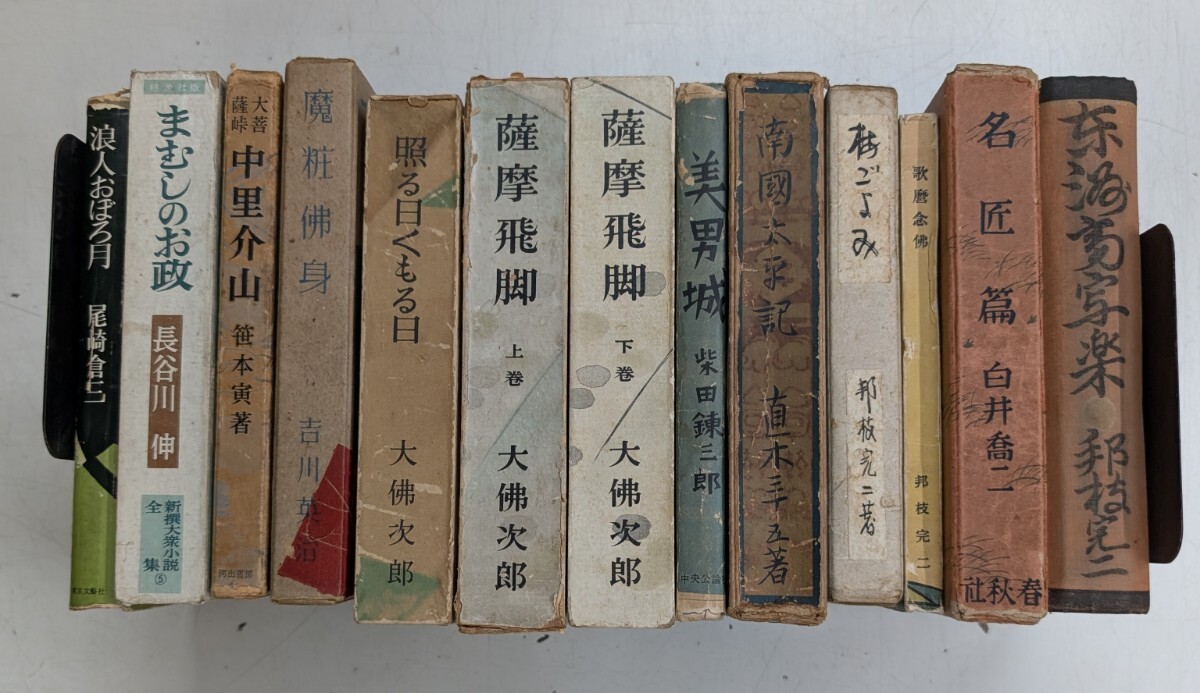 浪人おぼろ月
尾崎倉三
東京文藝社
まむしのお政
長谷川 伸
新撰大衆小説
全集⑤
大菩
薩峠
中里介山
笹本寅著
河出書房
魔粧佛身
吉川英治
照る日くもる日
大佛次郎
薩摩飛脚
上巻
大佛次郎
薩摩飛脚
下巻
大佛次郎
美男城
柴田錬三郎
中央公論
南國太平記
直木三十五著
梅ごよみ
邦枝完二著
歌麿念佛
邦枝完二
名匠篇
白井喬二
春秋社
東洲斎写楽
邦枝完二